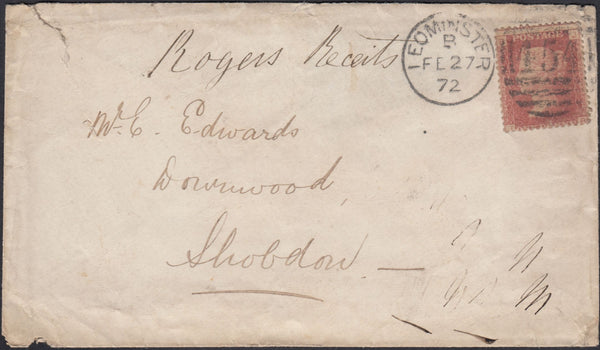 Rogers Receits
LEOMINSTER
B
FE 27
72
POSTAGE
Mr. E. Edwards
Downwood,
Shobdon —